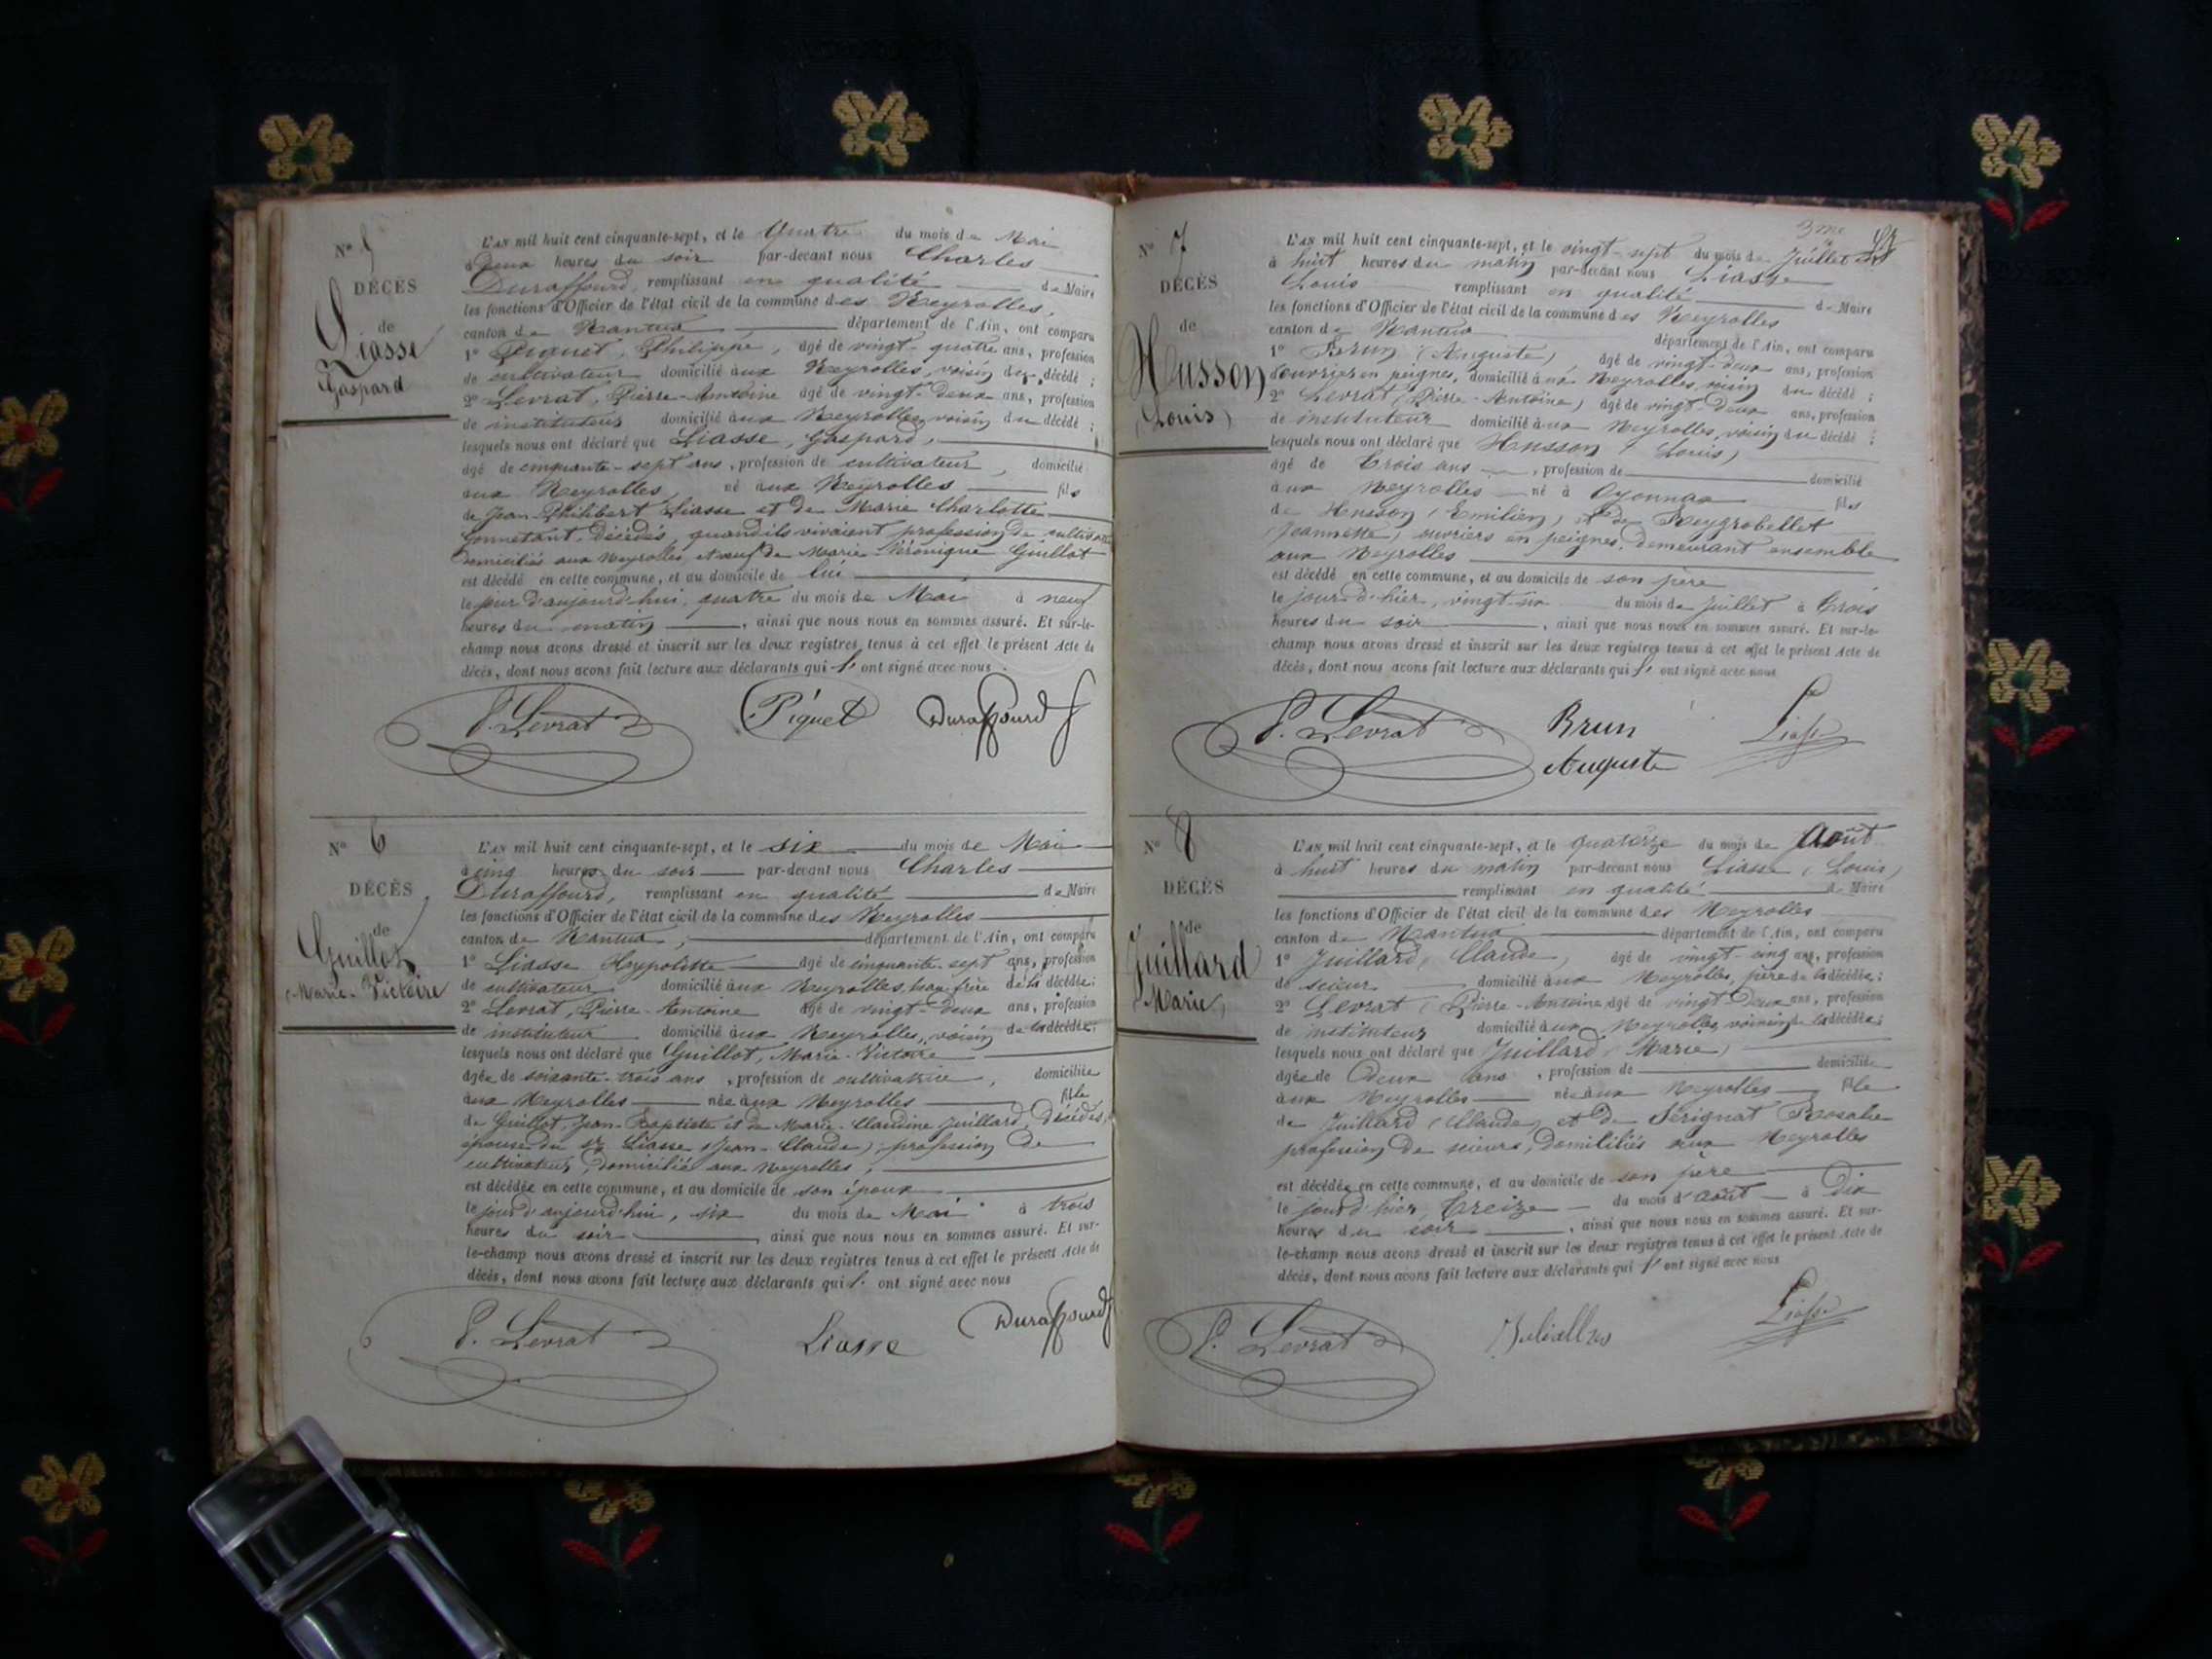 N° 5
DÉCÈS
de
Liasse
Gaspard
L'AN mil huit cent cinquante-sept, et le Quatre du mois de Mai
à Deux heures du soir par-devant nous Charles
Duraffourd, remplissant en qualité de Maire
les fonctions d'Officier de l'état civil de la commune des Neyrolles,
canton de Nantua département de l'Ain, ont comparu
1° Piquet, Philippe, âgé de vingt-quatre ans, profession
de cultivateur domicilié aux Neyrolles, voisin du décédé ;
2° Levrat, Pierre-Antoine âgé de vingt-deux ans, profession
de instituteur domicilié aux Neyrolles, voisin du décédé ;
lesquels nous ont déclaré que Liasse, Gaspard,
âgé de cinquante-sept ans, profession de cultivateur, domicilié
aux Neyrolles, né aux Neyrolles fils
de Jean-Philibert Liasse et de Marie Charlotte
Gonnetant, Décédés, quand ils vivaient profession de
domiciliés aux Neyrolles, et veuf de Marie Véronique Guillot
est décédé en cette commune, et au domicile de lui
le jour d'aujourd'hui, quatre du mois de Mai à neuf
heures du matin, ainsi que nous nous en sommes assuré. Et sur-le-
champ nous avons dressé et inscrit sur les deux registres tenus à cet effet le présent Acte de
décès, dont nous avons fait lecture aux déclarants qui l' ont signé avec nous.
P. Levrat Piquet Duraffourd
N° 6
DÉCÈS
de
Guillot
(Marie-Victoire
L'AN mil huit cent cinquante-sept, et le six du mois de Mai
à cinq heures du soir par-devant nous Charles
Duraffourd, remplissant en qualité de Maire
les fonctions d'Officier de l'état civil de la commune des Neyrolles
canton de Nantua, département de l'Ain, ont comparu
1° Liasse Hyppolitte âgé de cinquante-sept ans, profession
de cultivateur domicilié aux Neyrolles, beau-frère de la décédée ;
2° Levrat, Pierre-Antoine âgé de vingt-deux ans, profession
de instituteur domicilié aux Neyrolles, voisin de la décédée ;
lesquels nous ont déclaré que Guillot, Marie-Victoire
âgée de soixante-trois ans, profession de cultivatrice, domiciliée
aux Neyrolles née aux Neyrolles fille
de Guillot, Jean-Baptiste et de Marie-Claudine Juillard, Décédés,
épouse du sr Liasse (Jean-Claude), profession de
cultivateur, domicilié aux Neyrolles,
est décédée en cette commune, et au domicile de son époux
le jour d'aujourd'hui, six du mois de Mai à trois
heures du soir, ainsi que nous nous en sommes assuré. Et sur-
le-champ nous avons dressé et inscrit sur les deux registres tenus à cet effet le présent Acte de
décès, dont nous avons fait lecture aux déclarants qui l' ont signé avec nous
P. Levrat Liasse Duraffourd
3me
N° 7
DÉCÈS
de
Husson
(Louis)
L'AN mil huit cent cinquante-sept, et le vingt-sept du mois de Juillet
à huit heures du matin par-devant nous Liasse
Louis remplissant en qualité de Maire
les fonctions d'Officier de l'état civil de la commune des Neyrolles
canton de Nantua département de l'Ain, ont comparu
1° Brun (Auguste) âgé de vingt-deux ans, profession
d'ouvrier en peignes, domicilié aux Neyrolles, voisin du décédé ;
2° Levrat (Pierre-Antoine) âgé de vingt-deux ans, profession
de instituteur domicilié aux Neyrolles, voisin du décédé ;
lesquels nous ont déclaré que Husson (Louis)
âgé de Trois ans, profession de domicilié
aux Neyrolles né à Oyonnax fils
de Husson (Emilien) et de Reygrobellet
(Jeannette) ouvriers en peignes, demeurant ensemble
aux Neyrolles
est décédé en cette commune, et au domicile de son père
le jour d'hier, vingt-six du mois de Juillet à trois
heures du soir, ainsi que nous nous en sommes assuré. Et sur-le-
champ nous avons dressé et inscrit sur les deux registres tenus à cet effet le présent Acte de
décès, dont nous avons fait lecture aux déclarants qui l' ont signé avec nous
P. Levrat Brun Liasse
Auguste
N° 8
DÉCÈS
de
Juillard
(Marie)
L'AN mil huit cent cinquante-sept, et le quatorze du mois de Août
à huit heures du matin par-devant nous Liasse (Louis)
remplissant en qualité de Maire
les fonctions d'Officier de l'état civil de la commune des Neyrolles
canton de Nantua département de l'Ain, ont comparu
1° Juillard, Claude, âgé de vingt-cinq ans, profession
de scieur domicilié aux Neyrolles, père de la décédée ;
2° Levrat (Pierre-Antoine âgé de vingt-deux ans, profession
de instituteur domicilié aux Neyrolles, voisin de la décédée ;
lesquels nous ont déclaré que Juillard (Marie)
âgée de Deux ans, profession de domiciliée
aux Neyrolles née aux Neyrolles fille
de Juillard (Claude) et de Sérignat Rosalie
profession de scieurs, domiciliés aux Neyrolles
est décédée en cette commune, et au domicile de son père
le jour d'hier, treize du mois d'août à Dix
heures du soir, ainsi que nous nous en sommes assuré. Et sur-
le-champ nous avons dressé et inscrit sur les deux registres tenus à cet effet le présent Acte de
décès, dont nous avons fait lecture aux déclarants qui l' ont signé avec nous
P. Levrat Liasse